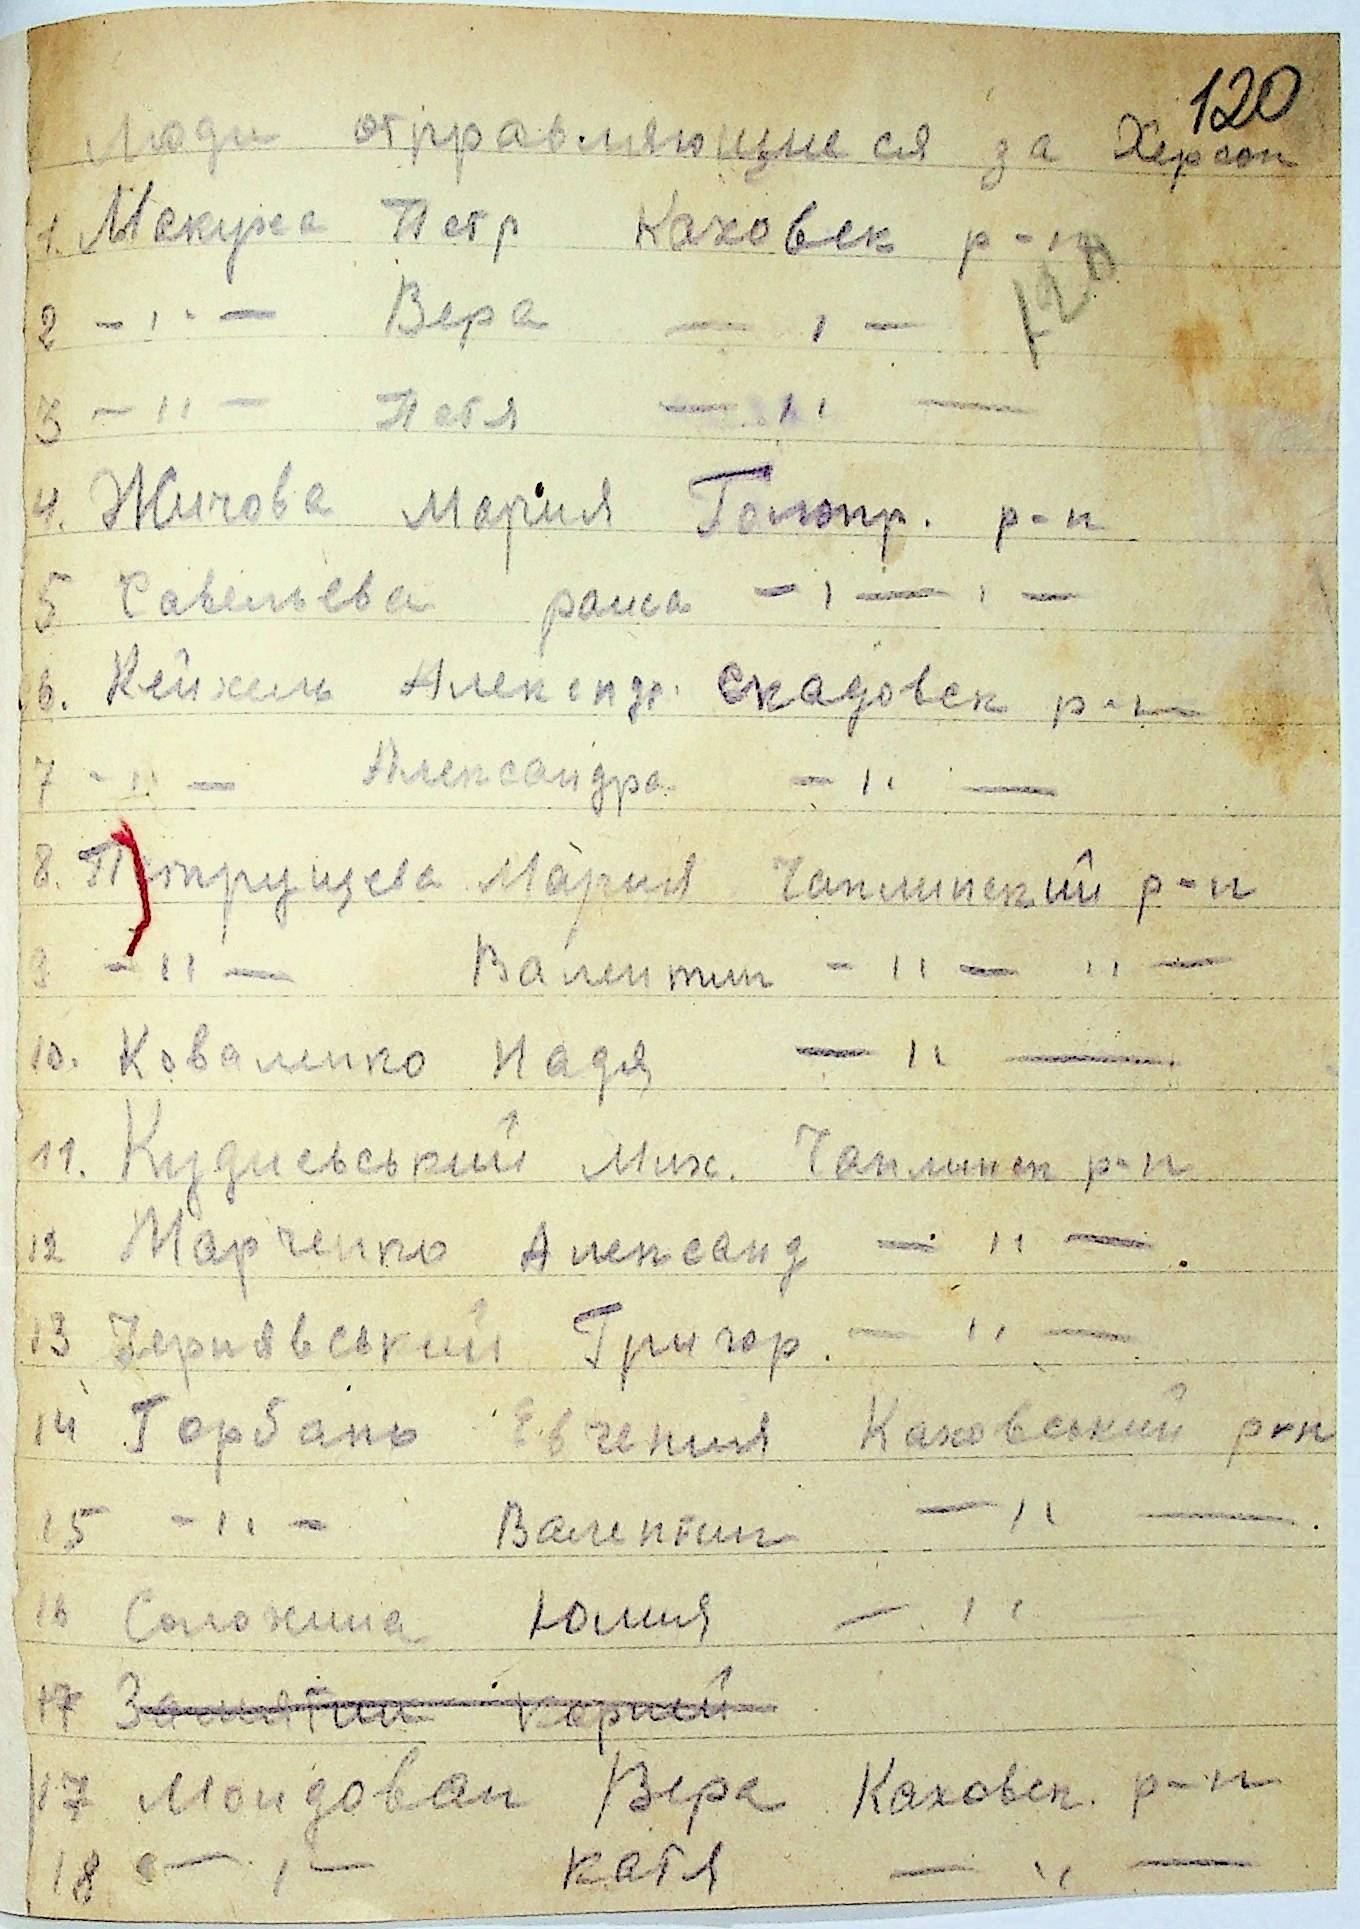 120
Люди отправляющиеся за Херсон
1. Макуха Петр Каховск р-н
120
2 - " - Вера - " -
3 - " - Петя - " -
4. Жигова Мария Голопр. р-н
5 Савельева раиса - " - " -
6. Кейхель Александр. Скадовск р-н
7 - " - Александра - " -
8. Петрущева Мария Чаплинский р-н
9 - " - Валентин - " - " -
10. Коваленко Надя - " -
11. Мих. Чаплинск р-н
12 Марченко Александ - " - .
13 Чернявський Григор. - " -
14 Горбань Евгения Каховський р-н
15 - " - Валентин - " - .
16 Соложина Юлия - "
17 Замятин Корней
17 Молдован Вера Каховск. р-н
18 - " - Катя - " -